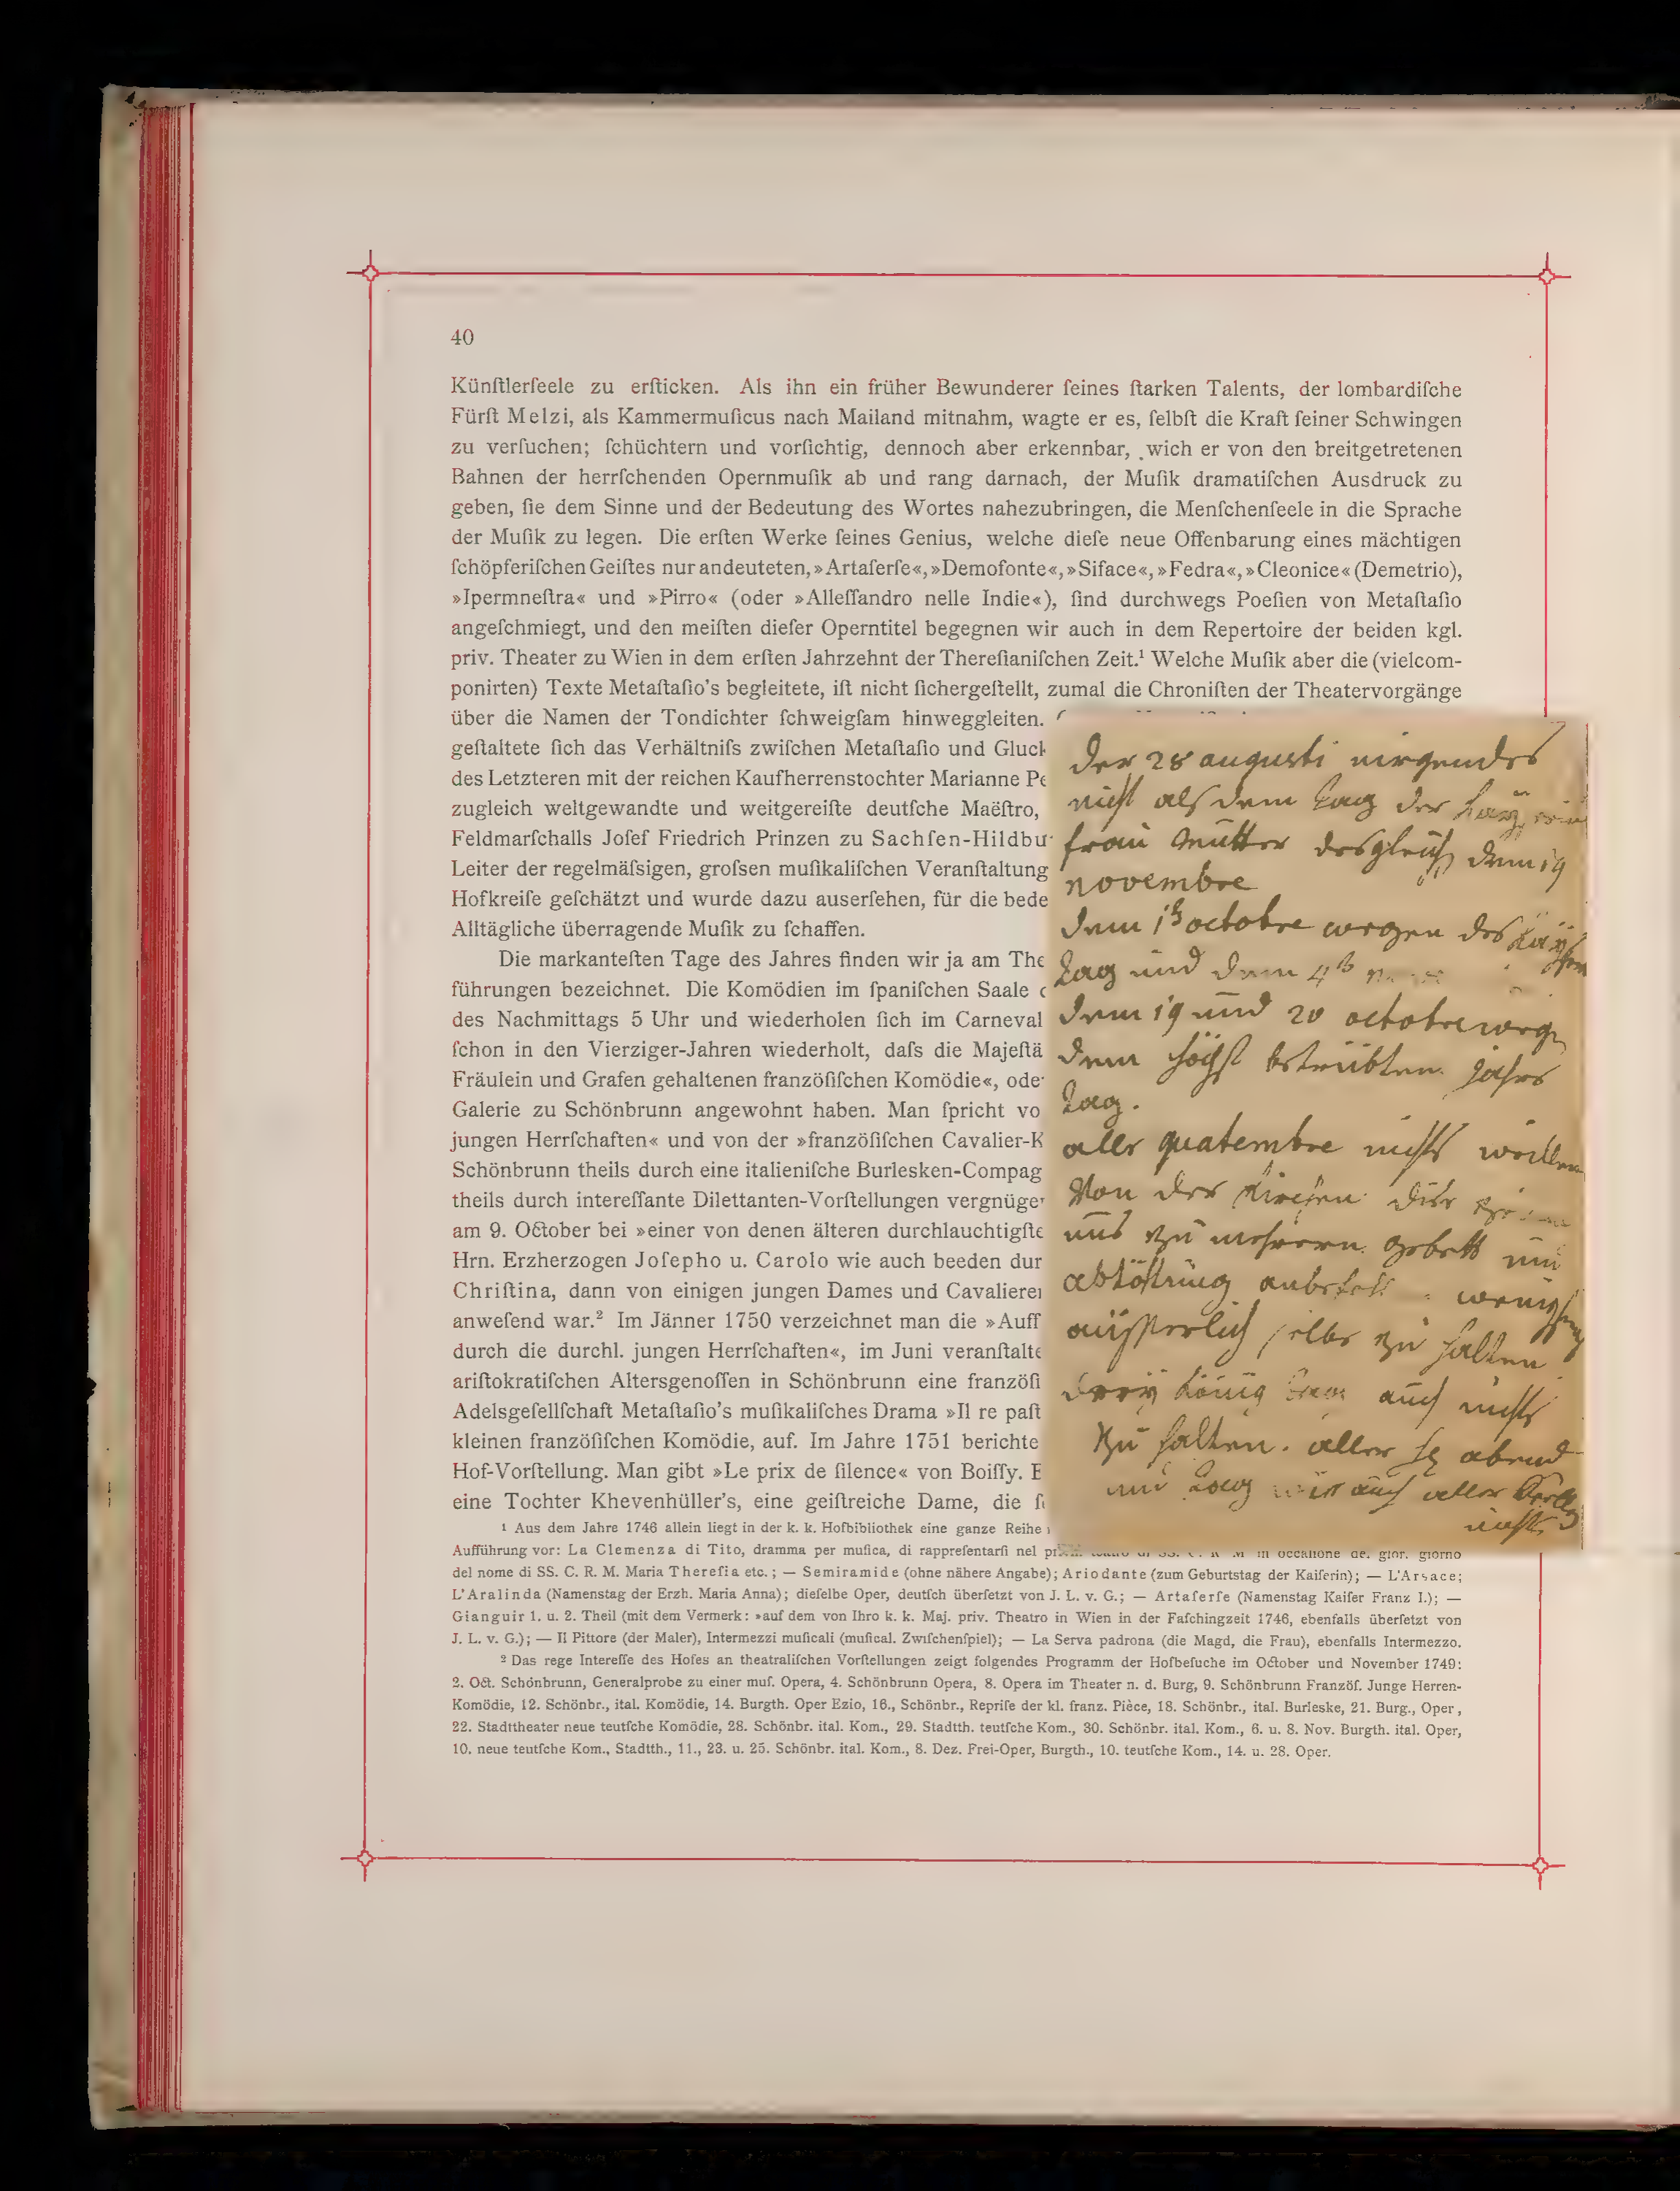 40
Künſtlerſeele zu erſticken. Als ihn ein früher Bewunderer ſeines ſtarken Talents, der lombardiſche
Fürſt Melzi, als Kammermuſicus nach Mailand mitnahm, wagte er es, ſelbſt die Kraft ſeiner Schwingen
zu verſuchen; ſchüchtern und vorſichtig, dennoch aber erkennbar, wich er von den breitgetretenen
Bahnen der herrſchenden Opernmuſik ab und rang darnach, der Muſik dramatiſchen Ausdruck zu
geben, ſie dem Sinne und der Bedeutung des Wortes nahezubringen, die Menſchenſeele in die Sprache
der Muſik zu legen. Die erſten Werke ſeines Genius, welche dieſe neue Offenbarung eines mächtigen
ſchöpferiſchen Geiſtes nur andeuteten, »Artaſerſe«, »Demofonte«, »Siface«, »Fedra«, »Cleonice« (Demetrio),
»Ipermneſtra« und »Pirro« (oder »Alleſſandro nelle Indie«), ſind durchwegs Poeſien von Metaſtaſio
angeſchmiegt, und den meiſten dieſer Operntitel begegnen wir auch in dem Repertoire der beiden kgl.
priv. Theater zu Wien in dem erſten Jahrzehnt der Thereſianiſchen Zeit.¹ Welche Muſik aber die (vielcom-
ponirten) Texte Metaſtaſio's begleitete, iſt nicht ſichergeſtellt, zumal die Chroniſten der Theatervorgänge
über die Namen der Tondichter ſchweigſam hinweggleiten.
geſtaltete ſich das Verhältniſs zwiſchen Metaſtaſio und Gluck
des Letzteren mit der reichen Kaufherrenstochter Marianne
zugleich weltgewandte und weitgereiſte deutſche Maëſtro,
Feldmarſchalls Joſef Friedrich Prinzen zu Sachſen-Hildbu
Leiter der regelmäſsigen, groſsen muſikaliſchen Veranſtaltung
Hofkreiſe geſchätzt und wurde dazu auserſehen, für die bede
Alltägliche überragende Muſik zu ſchaffen.
Die markanteſten Tage des Jahres finden wir ja am The
führungen bezeichnet. Die Komödien im ſpaniſchen Saale
des Nachmittags 5 Uhr und wiederholen ſich im Carneval
ſchon in den Vierziger-Jahren wiederholt, daſs die Majeſtä
Fräulein und Grafen gehaltenen franzöſiſchen Komödie«, ode
Galerie zu Schönbrunn angewohnt haben. Man ſpricht vo
jungen Herrſchaften« und von der »franzöſiſchen Cavalier-K
Schönbrunn theils durch eine italieniſche Burlesken-Compag
theils durch intereſſante Dilettanten-Vorſtellungen vergnüge
am 9. October bei »einer von denen älteren durchlauchtigſte
Hrn. Erzherzogen Joſepho u. Carolo wie auch beeden dur
Chriſtina, dann von einigen jungen Dames und Cavaliere
anweſend war.² Im Jänner 1750 verzeichnet man die »Auff
durch die durchl. jungen Herrſchaften«, im Juni veranſtalte
ariſtokratiſchen Altersgenoſſen in Schönbrunn eine franzöſi
Adelsgeſellſchaft Metaſtaſio's muſikaliſches Drama »Il re paſt
kleinen franzöſiſchen Komödie, auf. Im Jahre 1751 berichte
Hof-Vorſtellung. Man gibt »Le prix de ſilence« von Boiſſy. E
eine Tochter Khevenhüller's, eine geiſtreiche Dame, die
der 28 augusti nirgendes
nicht als dem tag der
frau mutter desgleich dem 19
novembre
dem 1ᵗ octobre wegen des
tag und dem 4ᵗ
dem 19 und 20 octobre weg
dem höchst betrübten jahrs
tag.
alle quatembre nichts wollen
von der kirchen die
uns zu mehrern gebett und
abtöttung anbefelt wenigstens
äusserlich selbe zu halten
drey könig tag auch nichts
zu halten. aller hl abend
und tag wie auch aller
nichts
¹ Aus dem Jahre 1746 allein liegt in der k. k. Hofbibliothek eine ganze Reihe
Aufführung vor: La Clemenza di Tito, dramma per muſica, di rappreſentarſi nel in occaſione del glor. giorno
del nome di SS. C. R. M. Maria Thereſia etc.; — Semiramide (ohne nähere Angabe); Ariodante (zum Geburtstag der Kaiſerin); — L'Arsace;
L'Aralinda (Namenstag der Erzh. Maria Anna); dieſelbe Oper, deutſch überſetzt von J. L. v. G.; — Artaſerſe (Namenstag Kaiſer Franz I.); —
Gianguir 1. u. 2. Theil (mit dem Vermerk: »auf dem von Ihro k. k. Maj. priv. Theatro in Wien in der Faſchingzeit 1746, ebenfalls überſetzt von
J. L. v. G.); — Il Pittore (der Maler), Intermezzi muſicali (muſical. Zwiſchenſpiel); — La Serva padrona (die Magd, die Frau), ebenfalls Intermezzo.
² Das rege Intereſſe des Hofes an theatraliſchen Vorſtellungen zeigt folgendes Programm der Hofbeſuche im October und November 1749:
2. Oct. Schönbrunn, Generalprobe zu einer muſ. Opera, 4. Schönbrunn Opera, 8. Opera im Theater n. d. Burg, 9. Schönbrunn Franzöſ. Junge Herren-
Komödie, 12. Schönbr., ital. Komödie, 14. Burgth. Oper Ezio, 16., Schönbr., Repriſe der kl. franz. Pièce, 18. Schönbr., ital. Burleske, 21. Burg., Oper,
22. Stadttheater neue teutſche Komödie, 28. Schönbr. ital. Kom., 29. Stadtth. teutſche Kom., 30. Schönbr. ital. Kom., 6. u. 8. Nov. Burgth. ital. Oper,
10. neue teutſche Kom., Stadtth., 11., 23. u. 25. Schönbr. ital. Kom., 8. Dez. Frei-Oper, Burgth., 10. teutſche Kom., 14. u. 28. Oper.